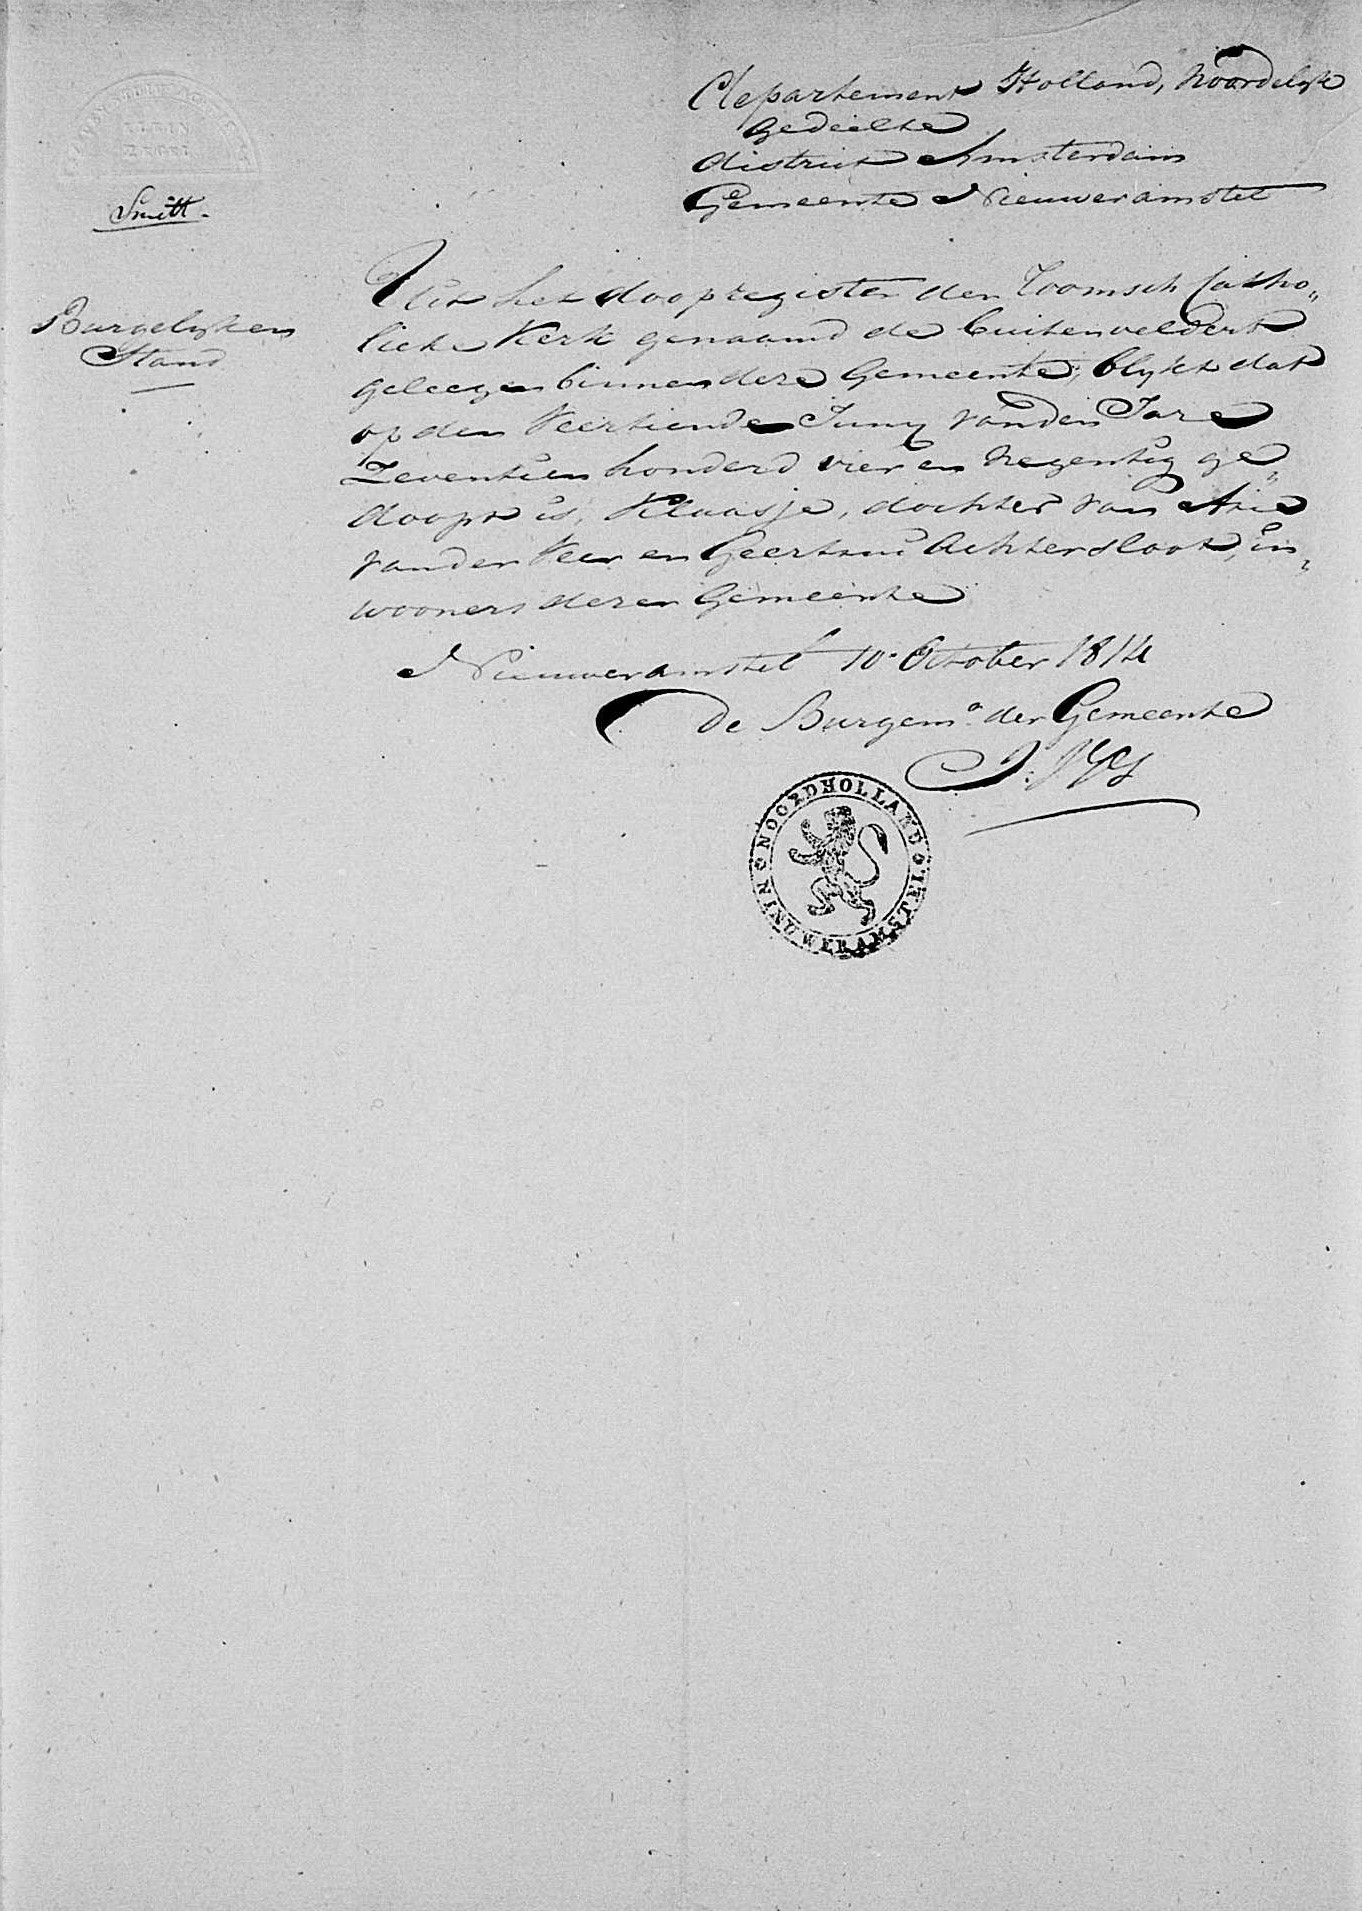 Departement Holland, Noordelijk
Gedeelte
District Amsterdam
Gemeente Nieuweramstel
Smitt.
Burgelyken
Stand
Uit het doopregister der Roomsch Catho„
lieke Kerk genaamd de buitenveldert
geleegen binnen deze Gemeente, blykt dat
op den Veertiende Juny van den Jare
Zeventien honderd vier en negentig ge„
doopt is, Klaasje, dochter van Arie
van der Veer en Geertrui Achtersloot, in„
wooners dezer Gemeente
Nieuweramstel 10 October 1814
De Burgemr. der Gemeente
NOORDHOLLAND
NIEUWERAMSTEL